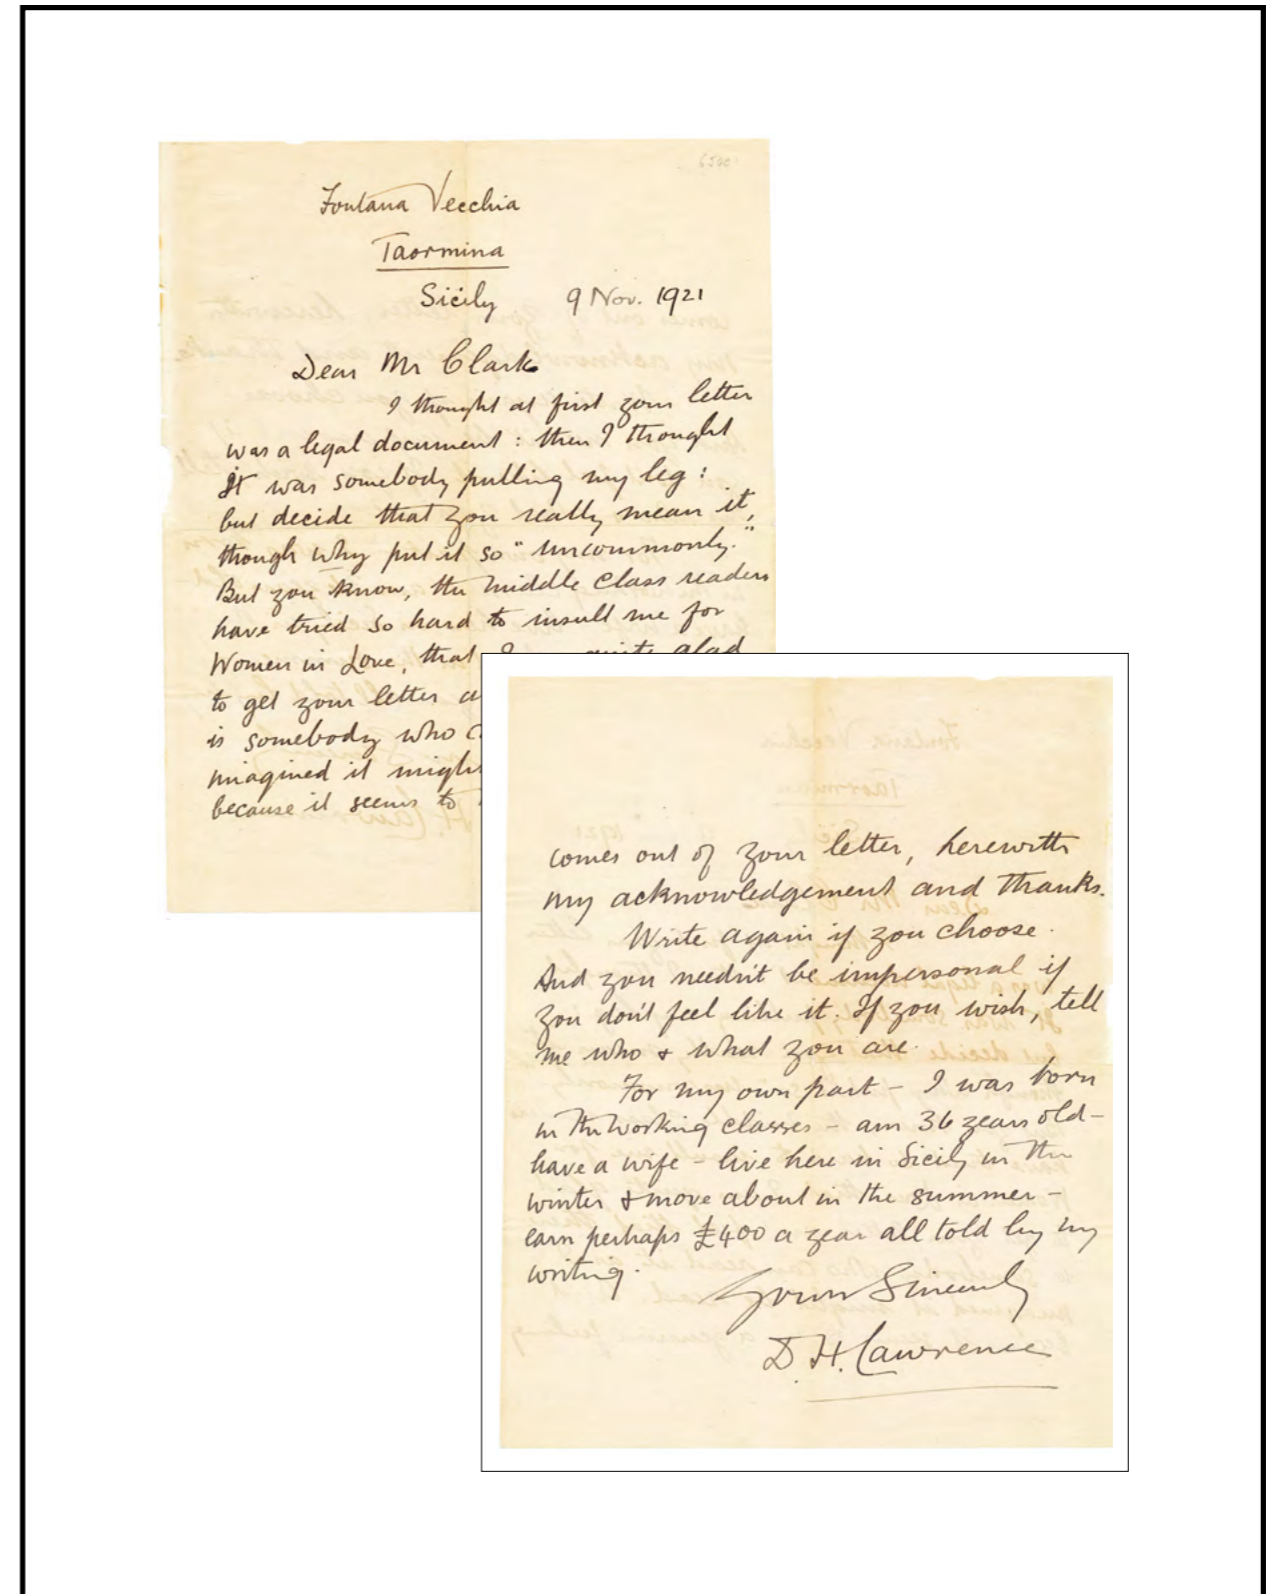 6500
Fontana Vecchia
Taormina
Sicily 9 Nov. 1921
Dear Mr Clark
I thought at first your letter
was a legal document : then I thought
it was somebody pulling my leg :
but decide that you really mean it,
though why put it so "uncommonly."
But you know, the middle class readers
have tried so hard to insult me for
Women in Love, that I quite glad
to get your letter
is somebody who
imagined it might
because it seems to
comes out of your letter, herewith
my acknowledgement and thanks.
Write again if you choose.
And you needn't be impersonal if
you don't feel like it. If you wish, tell
me who & what you are.
For my own part – I was born
in the working classes – am 36 years old –
have a wife – live here in Sicily in the
winter & move about in the summer –
earn perhaps £400 a year all told by my
writing.
Yours Sincerely
D. H. Lawrence